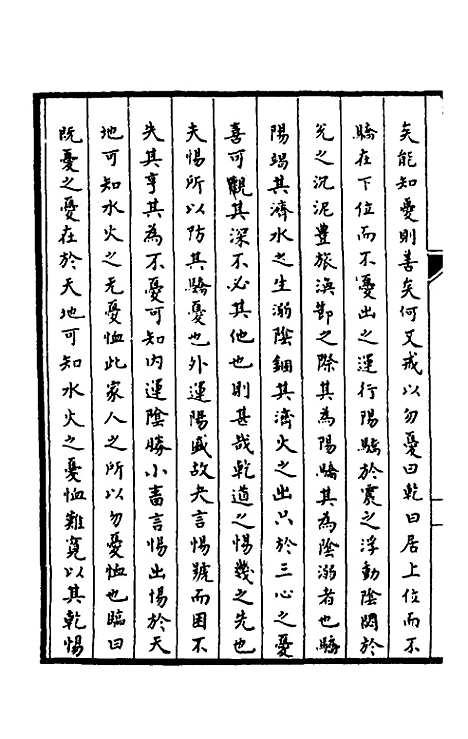 矣能知憂則善矣何又戒以勿憂曰乾曰居上位而不
驕在下位而不憂出之運行陽驕於震之浮動陰閟於
兌之沉泥豊旅渙節之際其為陽驕其為陰溺者也驕
陽竭其濟水之生溺陰錮其濟火之出只於三心之憂
喜可觀其深不必其他也則甚哉乾道之惕幾之先也
夫惕所以防其驕憂也外運陽盛故夬言惕號而困不
失其亨其為不憂可知内運陰勝小畜言惕出惕於天
地可知水火之无憂恤此家人之所以勿憂恤也臨曰
既憂之憂在於天地可知水火之憂恤難寛以其乾惕